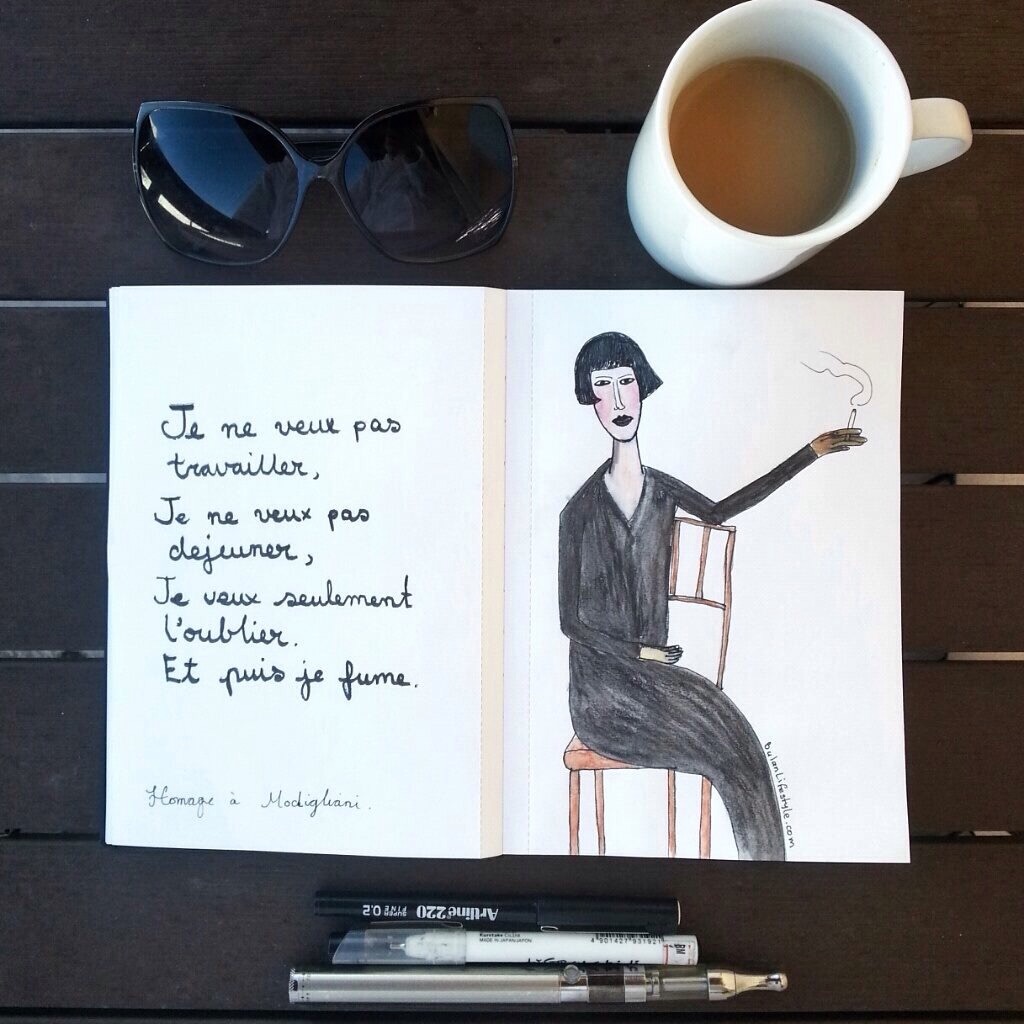 Je ne veux pas
travailler,
Je ne veux pas
dejeuner,
Je veux seulement
l'oublier.
Et puis je fume.
Homage à Modigliani.
BulanLifestyle.com
Artline 220
SUPER FINE 0.2
Kuretake Co.,Ltd.
MADE IN JAPAN/JAPON
4 901427 931921
BM